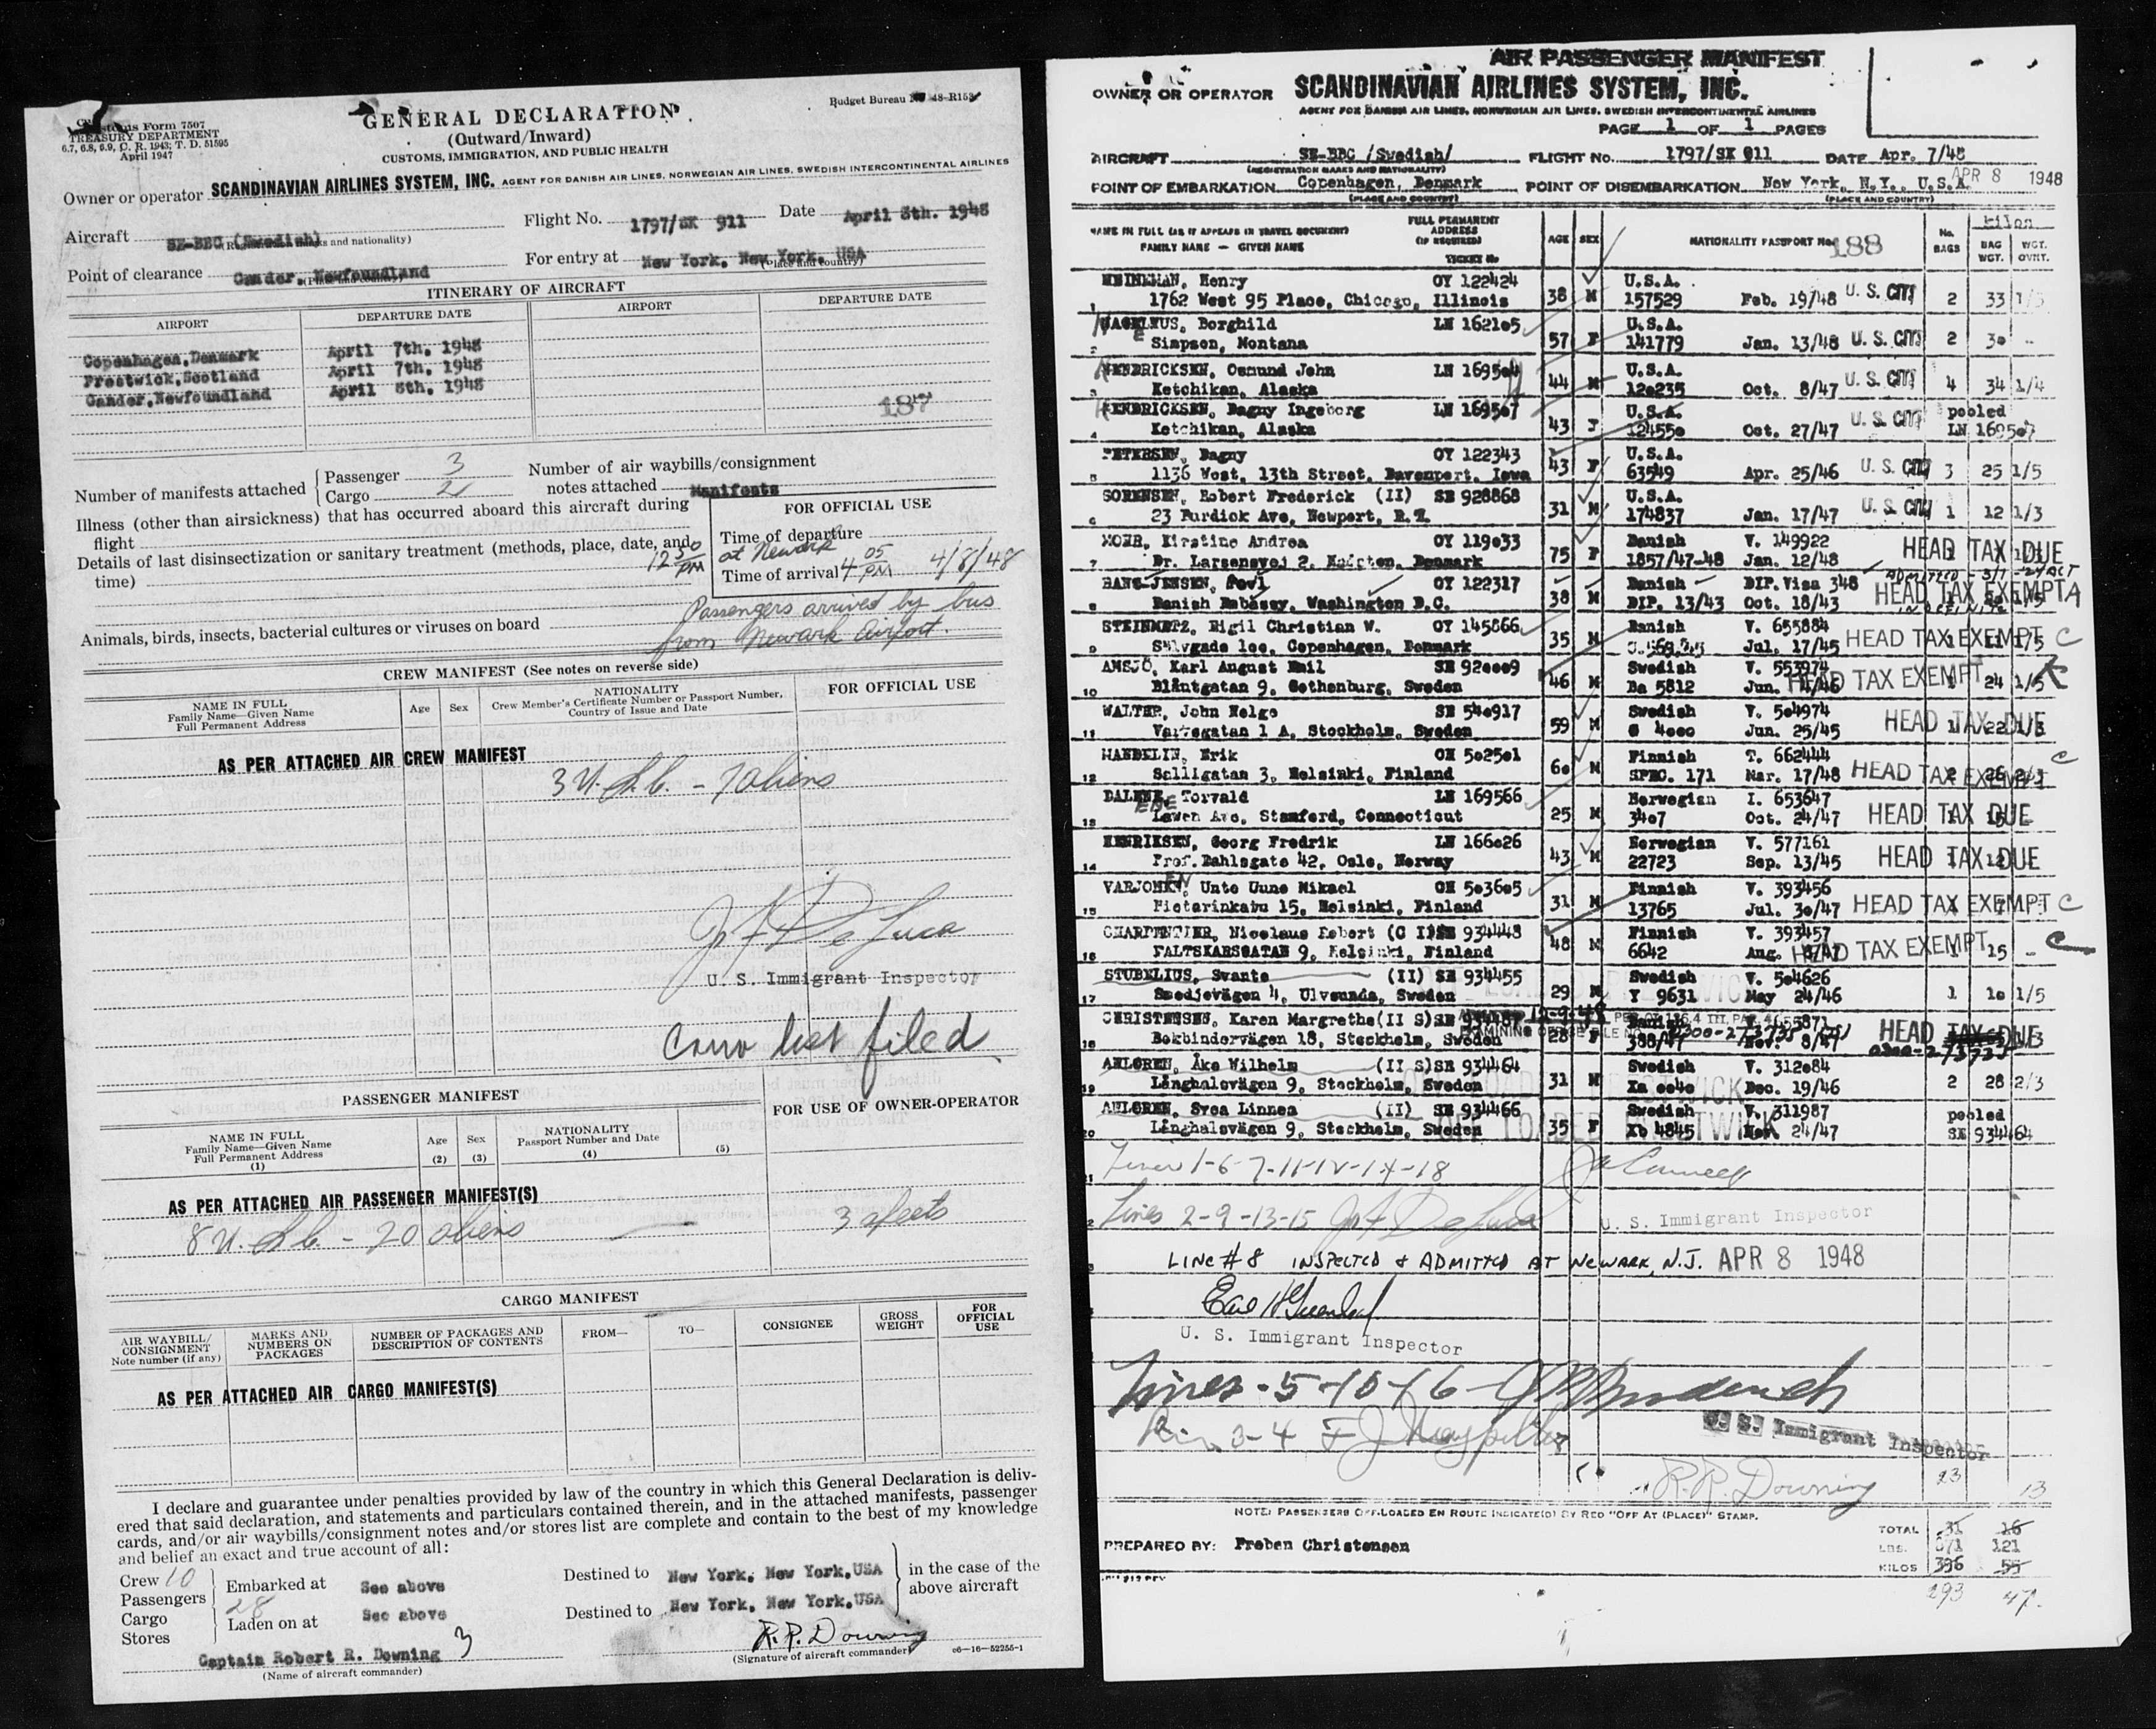 Customs Form 7507
TREASURY DEPARTMENT
6.7, 6.8, 6.9, C. R. 1943; T. D. 51595
April 1947
Budget Bureau 48-R153
GENERAL DECLARATION
(Outward/Inward)
CUSTOMS, IMMIGRATION, AND PUBLIC HEALTH
Owner or operator SCANDINAVIAN AIRLINES SYSTEM, INC. AGENT FOR DANISH AIR LINES, NORWEGIAN AIR LINES, SWEDISH INTERCONTINENTAL AIRLINES
Aircraft SE-BBC (Swedish) Flight No. 1797/SK 911 Date April 8th. 1948
Point of clearance Gander, Newfoundland For entry at New York, New York, USA
(Place and country) (Place and country)
ITINERARY OF AIRCRAFT
AIRPORT DEPARTURE DATE AIRPORT DEPARTURE DATE
Copenhagen,Denmark April 7th, 1948
Prestwick,Scotland April 7th, 1948
Gander,Newfoundland April 8th, 1948
187
Number of manifests attached Passenger 3 Cargo 2 Number of air waybills/consignment notes attached Manifests
Illness (other than airsickness) that has occurred aboard this aircraft during flight
Details of last disinsectization or sanitary treatment (methods, place, date, and time)
FOR OFFICIAL USE
Time of departure 12 30 PM
at Newark
Time of arrival 4 05 PM 4/8/48
Passengers arrived by bus
from Newark Airport.
Animals, birds, insects, bacterial cultures or viruses on board
CREW MANIFEST (See notes on reverse side)
NAME IN FULL
Family Name—Given Name
Full Permanent Address
Age Sex
NATIONALITY
Crew Member's Certificate Number or Passport Number,
Country of Issue and Date
FOR OFFICIAL USE
AS PER ATTACHED AIR CREW MANIFEST
3 U.S.C. - 7 aliens
U. S. Immigrant Inspector
list filed
PASSENGER MANIFEST
FOR USE OF OWNER-OPERATOR
NAME IN FULL
Family Name—Given Name
Full Permanent Address
(1)
Age (2) Sex (3)
NATIONALITY
Passport Number and Date
(4) (5)
AS PER ATTACHED AIR PASSENGER MANIFEST(S)
8 U.S.C. - 20 aliens
3 sheets
CARGO MANIFEST
AIR WAYBILL/
CONSIGNMENT
Note number (if any)
MARKS AND
NUMBERS ON
PACKAGES
NUMBER OF PACKAGES AND
DESCRIPTION OF CONTENTS
FROM— TO— CONSIGNEE
GROSS
WEIGHT
FOR
OFFICIAL
USE
AS PER ATTACHED AIR CARGO MANIFEST(S)
I declare and guarantee under penalties provided by law of the country in which this General Declaration is deliv-
ered that said declaration, and statements and particulars contained therein, and in the attached manifests, passenger
cards, and/or air waybills/consignment notes and/or stores list are complete and contain to the best of my knowledge
and belief an exact and true account of all:
Crew 10
Passengers 28
Cargo
Stores
Embarked at See above Destined to New York, New York,USA
Laden on at See above Destined to New York, New York,USA
in the case of the
above aircraft
Captain Robert R. Downing 3
(Name of aircraft commander)
R.R. Downing
(Signature of aircraft commander)
c6—16—52255-1
AIR PASSENGER MANIFEST
OWNER OR OPERATOR SCANDINAVIAN AIRLINES SYSTEM, INC.
AGENT FOR DANISH AIR LINES, NORWEGIAN AIR LINES, SWEDISH INTERCONTINENTAL AIRLINES
PAGE 1 OF 1 PAGES
AIRCRAFT SE-BBC /Swedish/ FLIGHT No. 1797/SK 911 DATE Apr. 7/48
(REGISTRATION MARKS AND NATIONALITY)
APR 8 1948
POINT OF EMBARKATION Copenhagen, Denmark POINT OF DISEMBARKATION New York, N.Y., U.S.A.
(PLACE AND COUNTRY) (PLACE AND COUNTRY)
NAME IN FULL (AS IT APPEARS IN TRAVEL DOCUMENT)
FAMILY NAME — GIVEN NAME
FULL PERMANENT
ADDRESS
(IF REQUIRED)
TICKET No
AGE SEX NATIONALITY PASSPORT No. 188
No. BAGS
kilos
BAG WGT. WGT. OVRT.
HEINEMAN, Henry OY 122424 38 M U.S.A.
1 1762 West 95 Place, Chicago, Illinois 157529 Feb. 19/48 U. S. CIT 2 33 1/3
Borghild LN 162105 57 F U.S.A.
2 Simpson, Montana 141779 Jan. 13/48 U. S. CIT 2 30 --
HENDRICKSEN, Osmund John LN 169504 44 M U.S.A.
3 Ketchikan, Alaska 120235 Oct. 8/47 U. S. CIT 4 34 1/4
HENDRICKSEN, Dagny Ingeborg LN 169507 43 F U.S.A. pooled
4 Ketchikan, Alaska 124550 Oct. 27/47 U. S. CIT LN 169507
PETERSEN, Dagny OY 122343 43 F U.S.A.
5 1136 West, 13th Street, Davenport, Iowa 63549 Apr. 25/46 U. S. CIT 3 25 1/5
SORENSEN, Robert Frederick (II) SE 928868 31 M U.S.A.
6 23 Burdick Ave, Newport, R.I. 174837 Jan. 17/47 U. S. CIT 1 12 1/3
MOHR, Kirstine Andrea OY 119033 75 F Danish V. 149922
7 Dr. Larsensvej 2, Denmark 1857/47-48 Jan. 12/48 HEAD TAX DUE
BANG-JENSEN, Povl OY 122317 38 M Danish DIP.Visa 348
8 Danish Embassy, Washington D.C. DIP. 13/43 Oct. 18/43 HEAD TAX EXEMPT A
STEINMETZ, Eigil Christian W. OY 145866 35 M Danish V. 655884
9 Sølvgade 100, Copenhagen, Denmark Jul. 17/45 HEAD TAX EXEMPT C
AMSJÖ, Karl August Emil SE 920009 46 M Swedish V. 553974
10 Bläntgatan 9, Gothenburg, Sweden Ba 5812 Jun. 4/46 HEAD TAX EXEMPT 24 1/5
WALTER, John Helge SE 540917 59 M Swedish V. 504974
11 1 A, Stockholm, Sweden 4000 Jun. 25/45 HEAD TAX DUE
WANDELIN, Erik OH 502501 60 M Finnish T. 662444
12 3, Helsinki, Finland SPEC. 171 Mar. 17/48 HEAD TAX EXEMPT C
DALENE, Torvald LN 169566 25 M Norwegian I. 653647
13 Lawen Ave, Stamford, Connecticut 3407 Oct. 24/47 HEAD TAX DUE
HENRIKSEN, Georg Fredrik LN 166026 43 M Norwegian V. 577161
14 Prof. Dahlsgate 42, Oslo, Norway 22723 Sep. 13/45 HEAD TAX DUE
VARJONEN, Unto Uuno Mikael OH 503605 31 M Finnish V. 393456
15 Pietarinkatu 15, Helsinki, Finland 13765 Jul. 30/47 HEAD TAX EXEMPT C
CHARPENTIER, Nicolaus Robert (C I) SE 934448 48 M Finnish V. 393457
16 FALTSKARSGATAN 9, Helsinki, Finland 6642 Aug. HEAD TAX EXEMPT 15 - C
STUBELIUS, Svante (II) SE 934455 29 M Swedish V. 504626
17 Smedjevägen 4, Ulvsunda, Sweden Y 9631 May 24/46 1 10 1/5
CHRISTENSEN, Karen Margrethe (II S) SE 28 F
18 Bokbindervägen 18, Stockholm, Sweden Nov. 8/47 HEAD TAX DUE
AHLGREN, Åke Wilhelm (II S) SE 934464 31 M Swedish V. 312084
19 Långhalsvägen 9, Stockholm, Sweden Xa 0040 Dec. 19/46 2 28 2/3
AHLGREN, Svea Linnea (II) SE 934466 35 F Swedish V. 311987 pooled
20 Långhalsvägen 9, Stockholm, Sweden Xb 4845 24/47 SE 934464
Lines 1-6-7-11-12-14-18
Lines 2-9-13-15
U. S. Immigrant Inspector
LINE #8 INSPECTED & ADMITTED AT NEWARK, N.J. APR 8 1948
U. S. Immigrant Inspector
Lines - 5-10-16
3-4
U. S. Immigrant Inspector
R.R. Downing
23 13
NOTE: PASSENGERS OFF-LOADED EN ROUTE INDICATE(D) BY RED "OFF AT (PLACE)" STAMP.
PREPARED BY: Preben Christensen
TOTAL 31 16
LBS. 871 121
KILOS 396 55
293 47